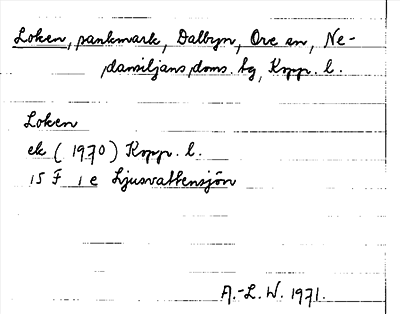 Loken, sankmark, Dalbyn, Ore sn, Ne-
dansiljans doms. tg, Kopp. l.
Loken
ek (1970) Kopp. l.
15 F 1 e Ljusvattensjön
A.-L. W. 1971.